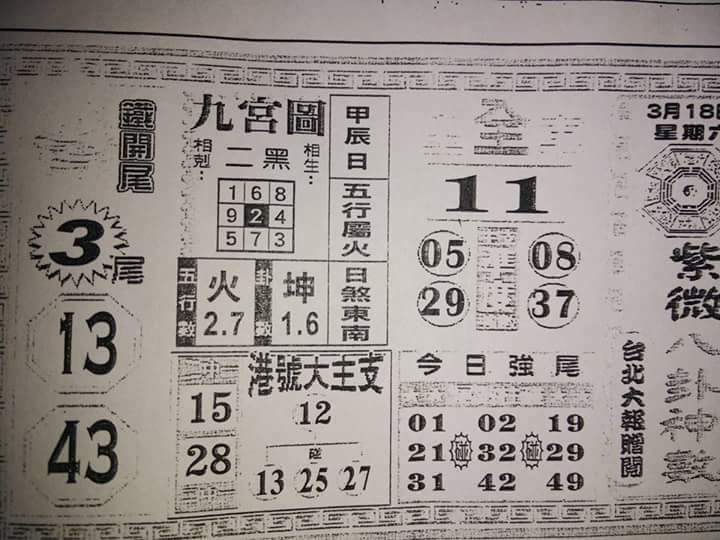 3月18日
星期六
紫微
八卦神數
台北大報贈閱
11
05 08
29 37
今日強尾
01 02 19
21 碰 32 碰 29
31 42 49
甲辰日 五行屬火 日煞東南
九宮圖
相生：
二黑
相剋：
1 6 8
9 2 4
5 7 3
卦數 坤 1.6
五行數 火 2.7
港號大主支
12
碰
13 25 27
15
28
鐵開尾
3尾
13
43